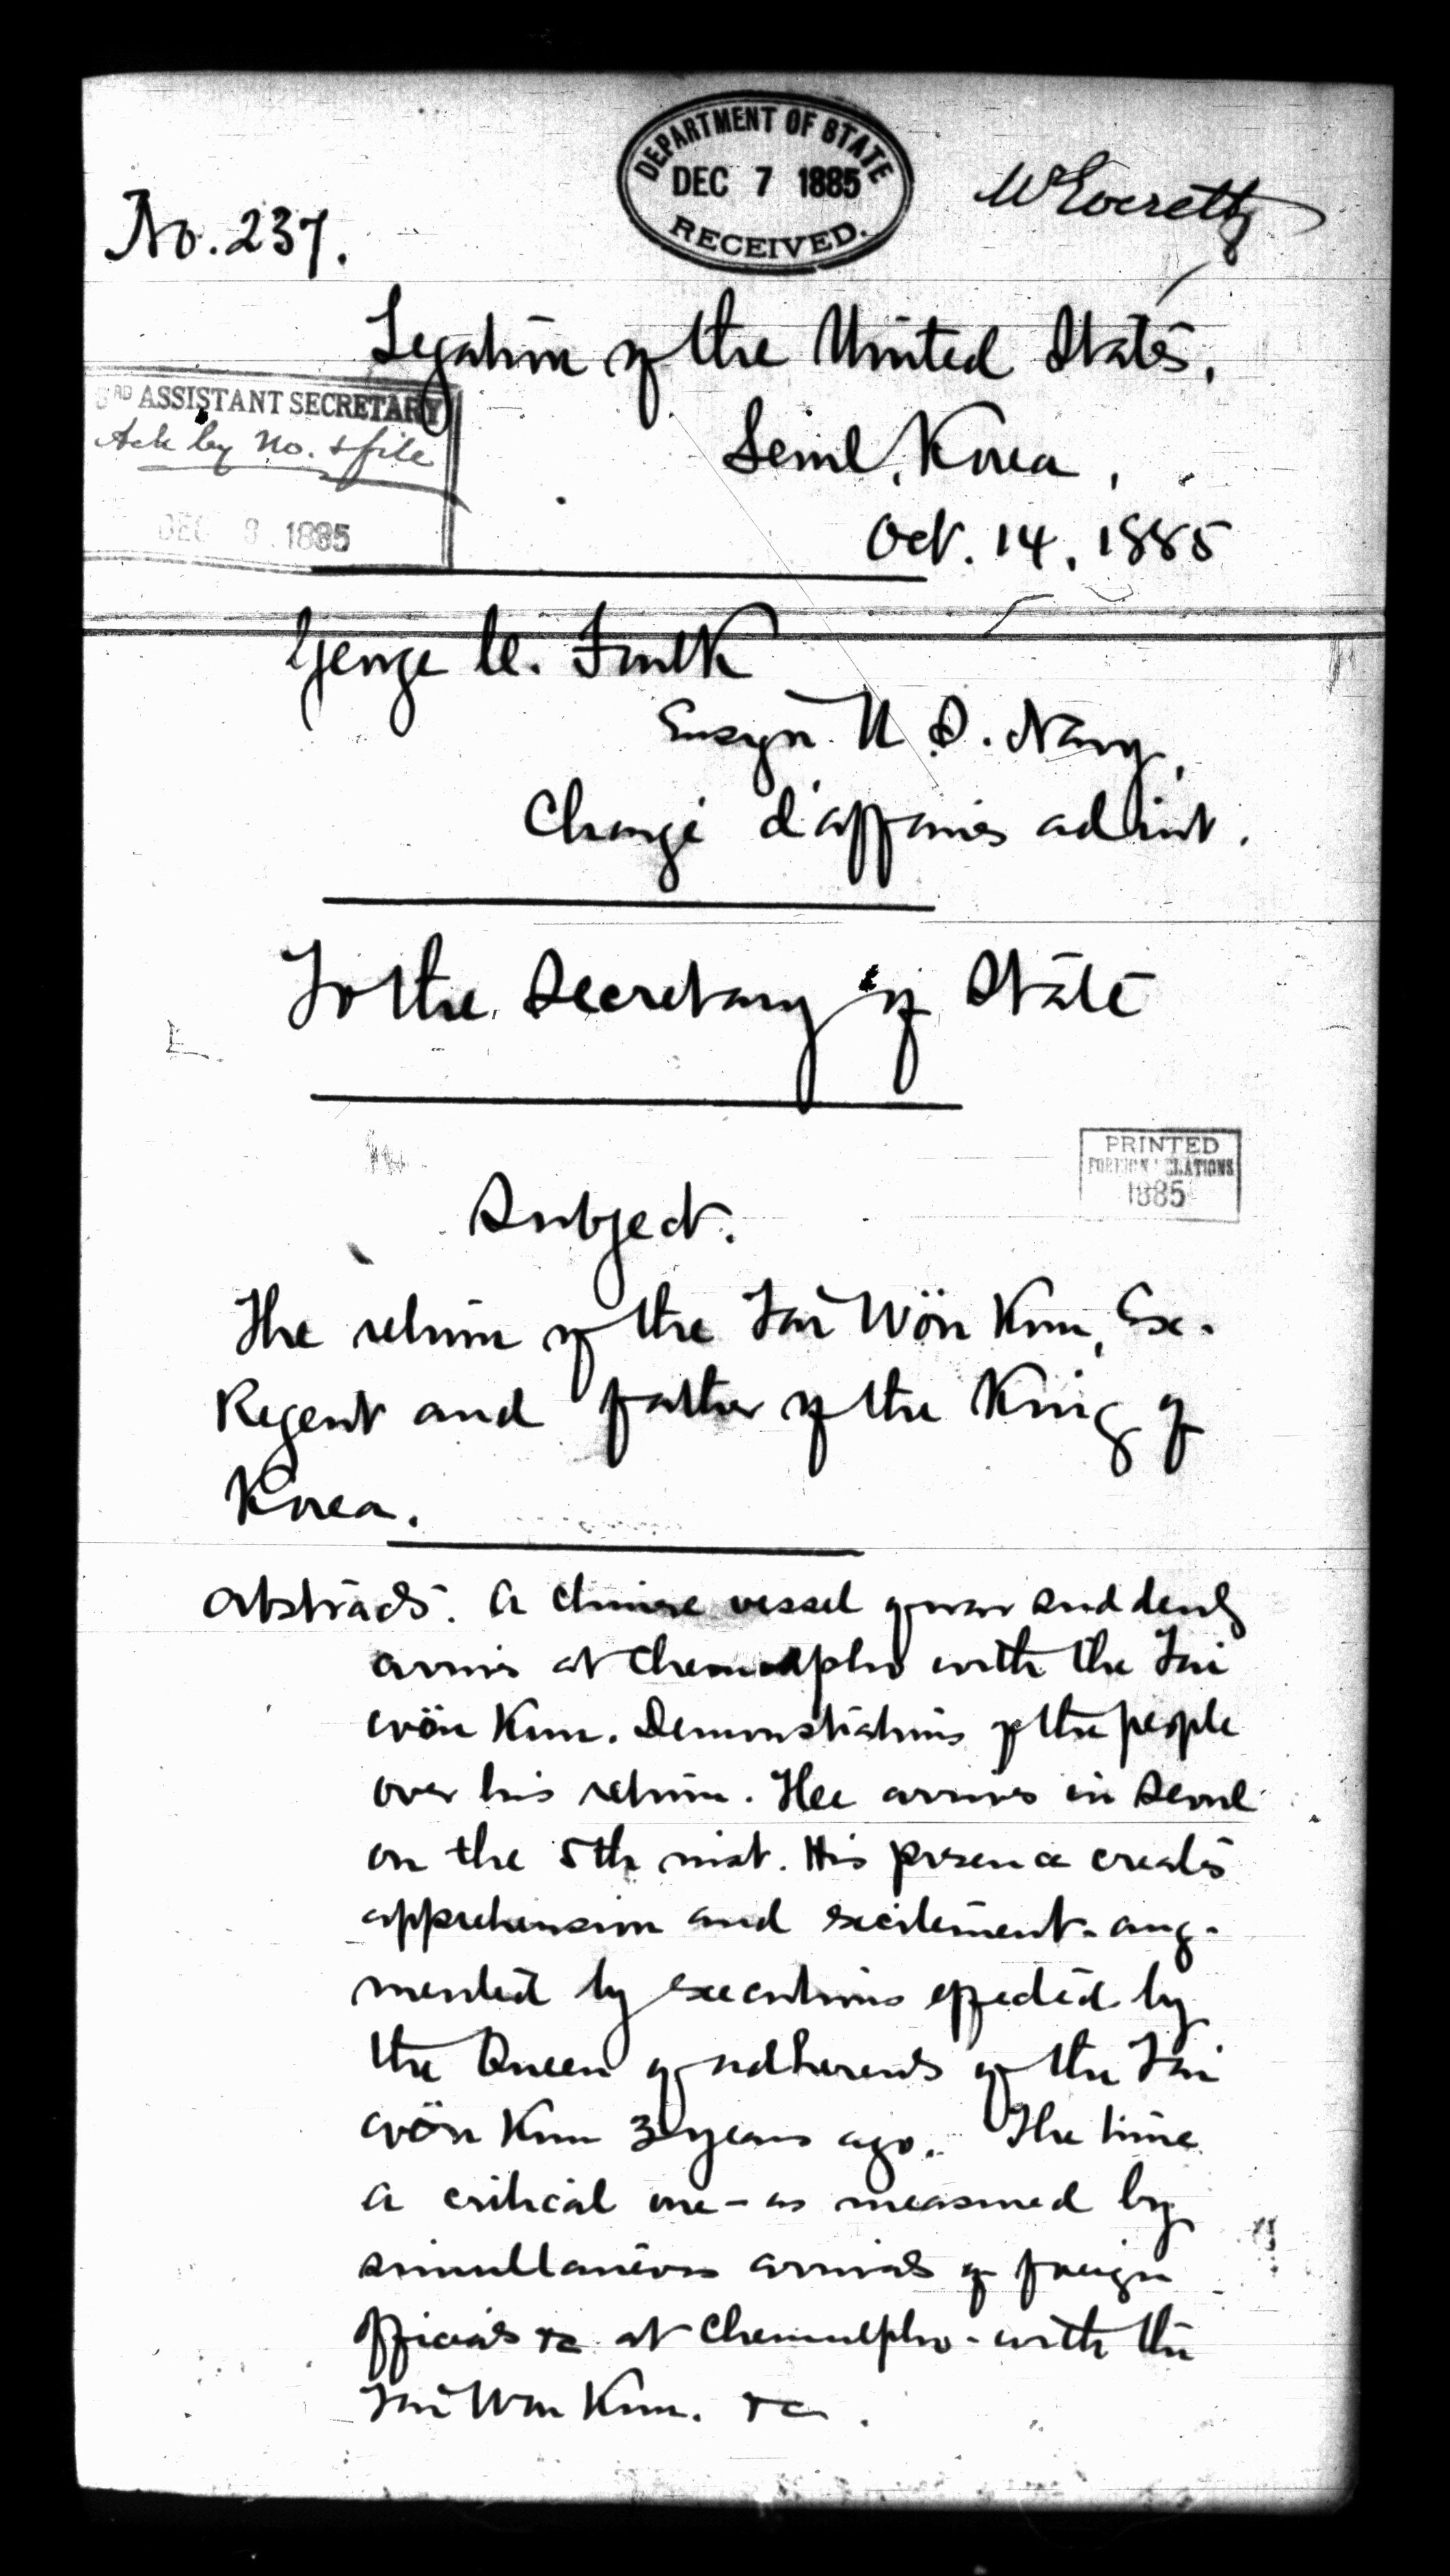 DEPARTMENT OF STATE
DEC 7 1885
RECEIVED.
W Everett
No. 237.
Legation of the United States,
3RD ASSISTANT SECRETARY
Ack by No. & file
DEC 8 1885
Seoul, Korea,
Oct. 14, 1885
George C. Foulk
Ensign U.S. Navy,
Chargé d'affaires ad int.
To the Secretary of State
PRINTED
FOREIGN RELATIONS
1885
Subject.
The return of the Tai Wön Kun, Ex-
Regent and father of the King of
Korea.
Abstract. A Chinese vessel of war suddenly
arrives at Chemulpho with the Tai
wön Kun. Demonstrations of the people
over his return. Hee arrives in Seoul
on the 5th inst. His presence creates
apprehension and excitement - aug-
mented by executions effected by
the Queen of adherents of the Tai
wön Kun 3 years ago. The time
a critical one - as measured by
simultaneous arrivals of foreign
officials &c at Chemulpho - with the
Tai Won Kun. &c.